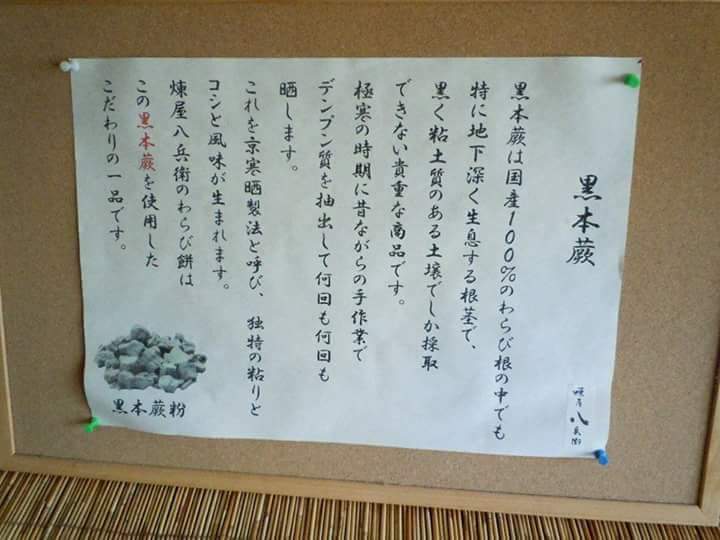 黒本蕨
黒本蕨は国産100%のわらび根の中でも
特に地下深く生息する根茎で、
黒く粘土質のある土壌でしか採取
できない貴重な商品です。
極寒の時期に昔ながらの手作業で
デンプン質を抽出して何回も何回も
晒します。
これを京寒晒製法と呼び、独特の粘りと
コシと風味が生まれます。
煉屋八兵衛のわらび餅は
この黒本蕨を使用した
こだわりの一品です。
黒本蕨粉
煉屋八兵衛